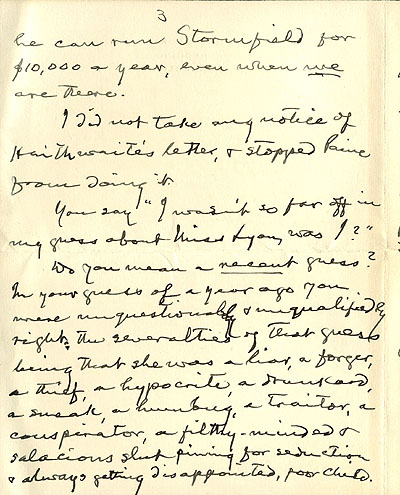 3
he can run Stormfield for
$10,000 a year, even when we
are there.
I did not take any notice of
Haithwaite's letter, & stopped Paine
from doing it.
You say "I wasn't so far off in
my guess about Miss Lyon, was I?"
Do you mean a recent guess?
In your guess of a year ago you
were unquestionably & unqualifiedly
right: the severalties of that guess
being that she was a liar, a forger,
a thief, a hypocrite, a drunkard,
a sneak, a humbug, a traitor, a
conspirator, a filthy-minded &
salacious slut pining for seduction
& always getting disappointed, poor child.